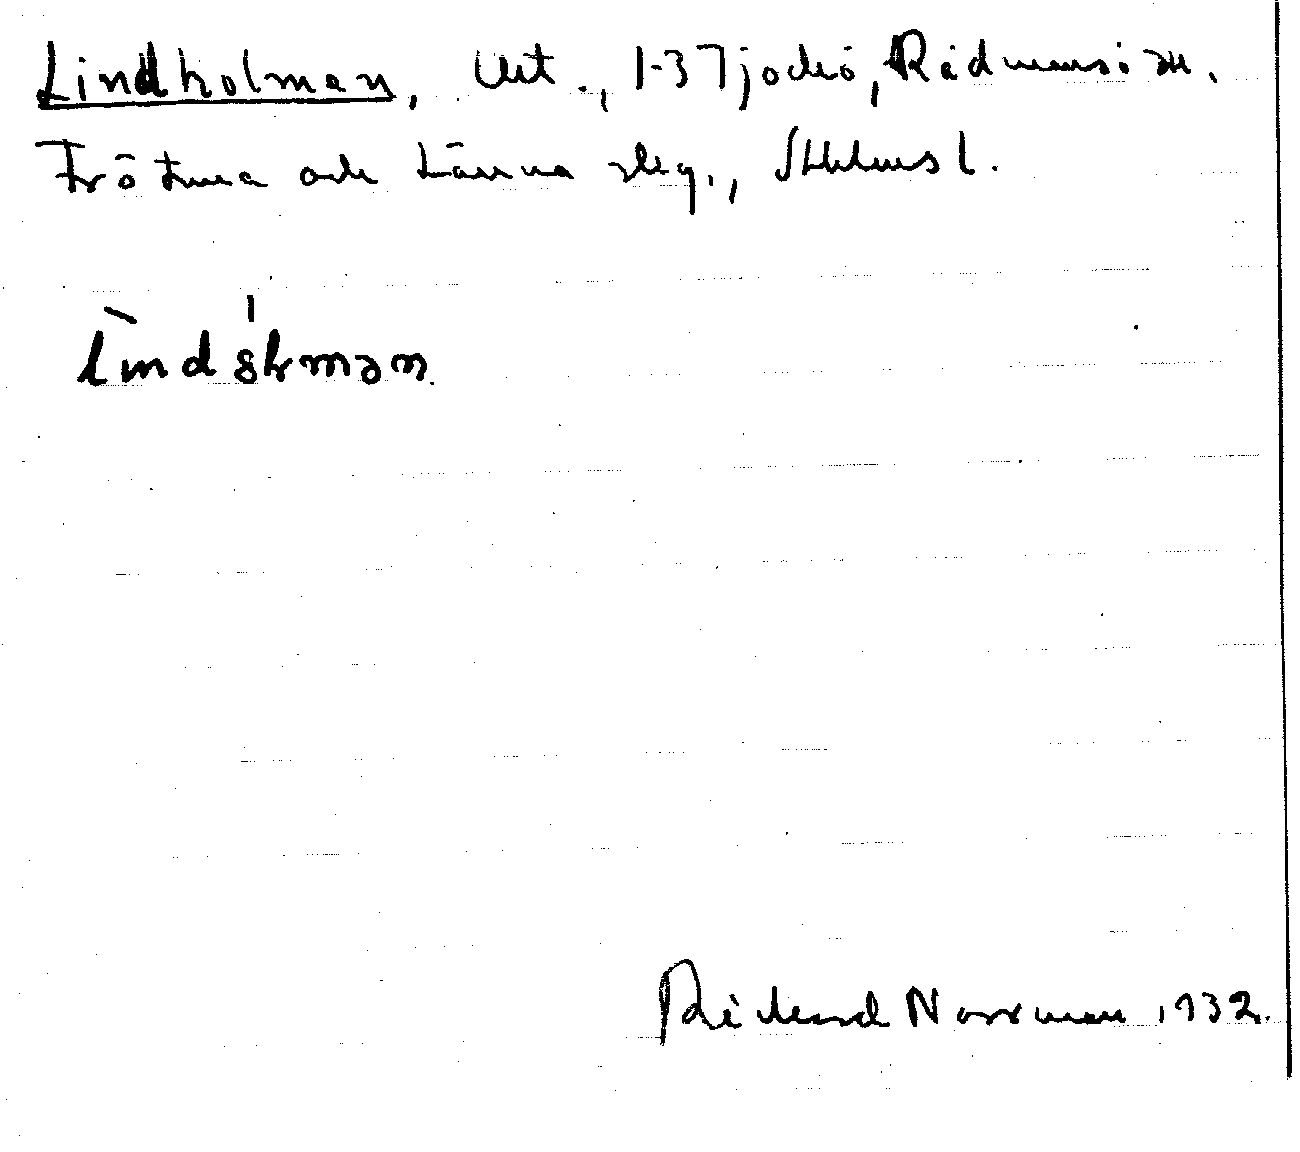 Lindholman, Utt., 1-37 jordeö, Rådmansö sn.
Frötuna och Länna slg., Sthlms l.
lìndólrman
Rickard Norrman 1932.